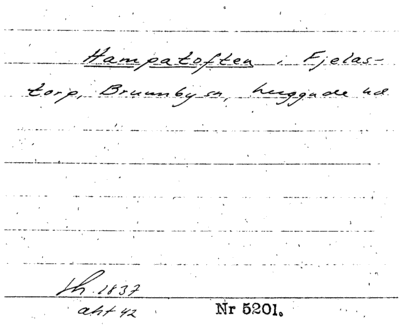 Hampatoften i Fjelas-
torp, Brunnby sn, huggade ud
1837
akt 42
Nr 5201.